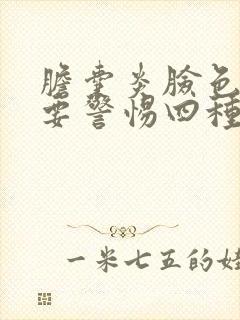 膽囊炎臉色
要警惕四種
一米七五的娃